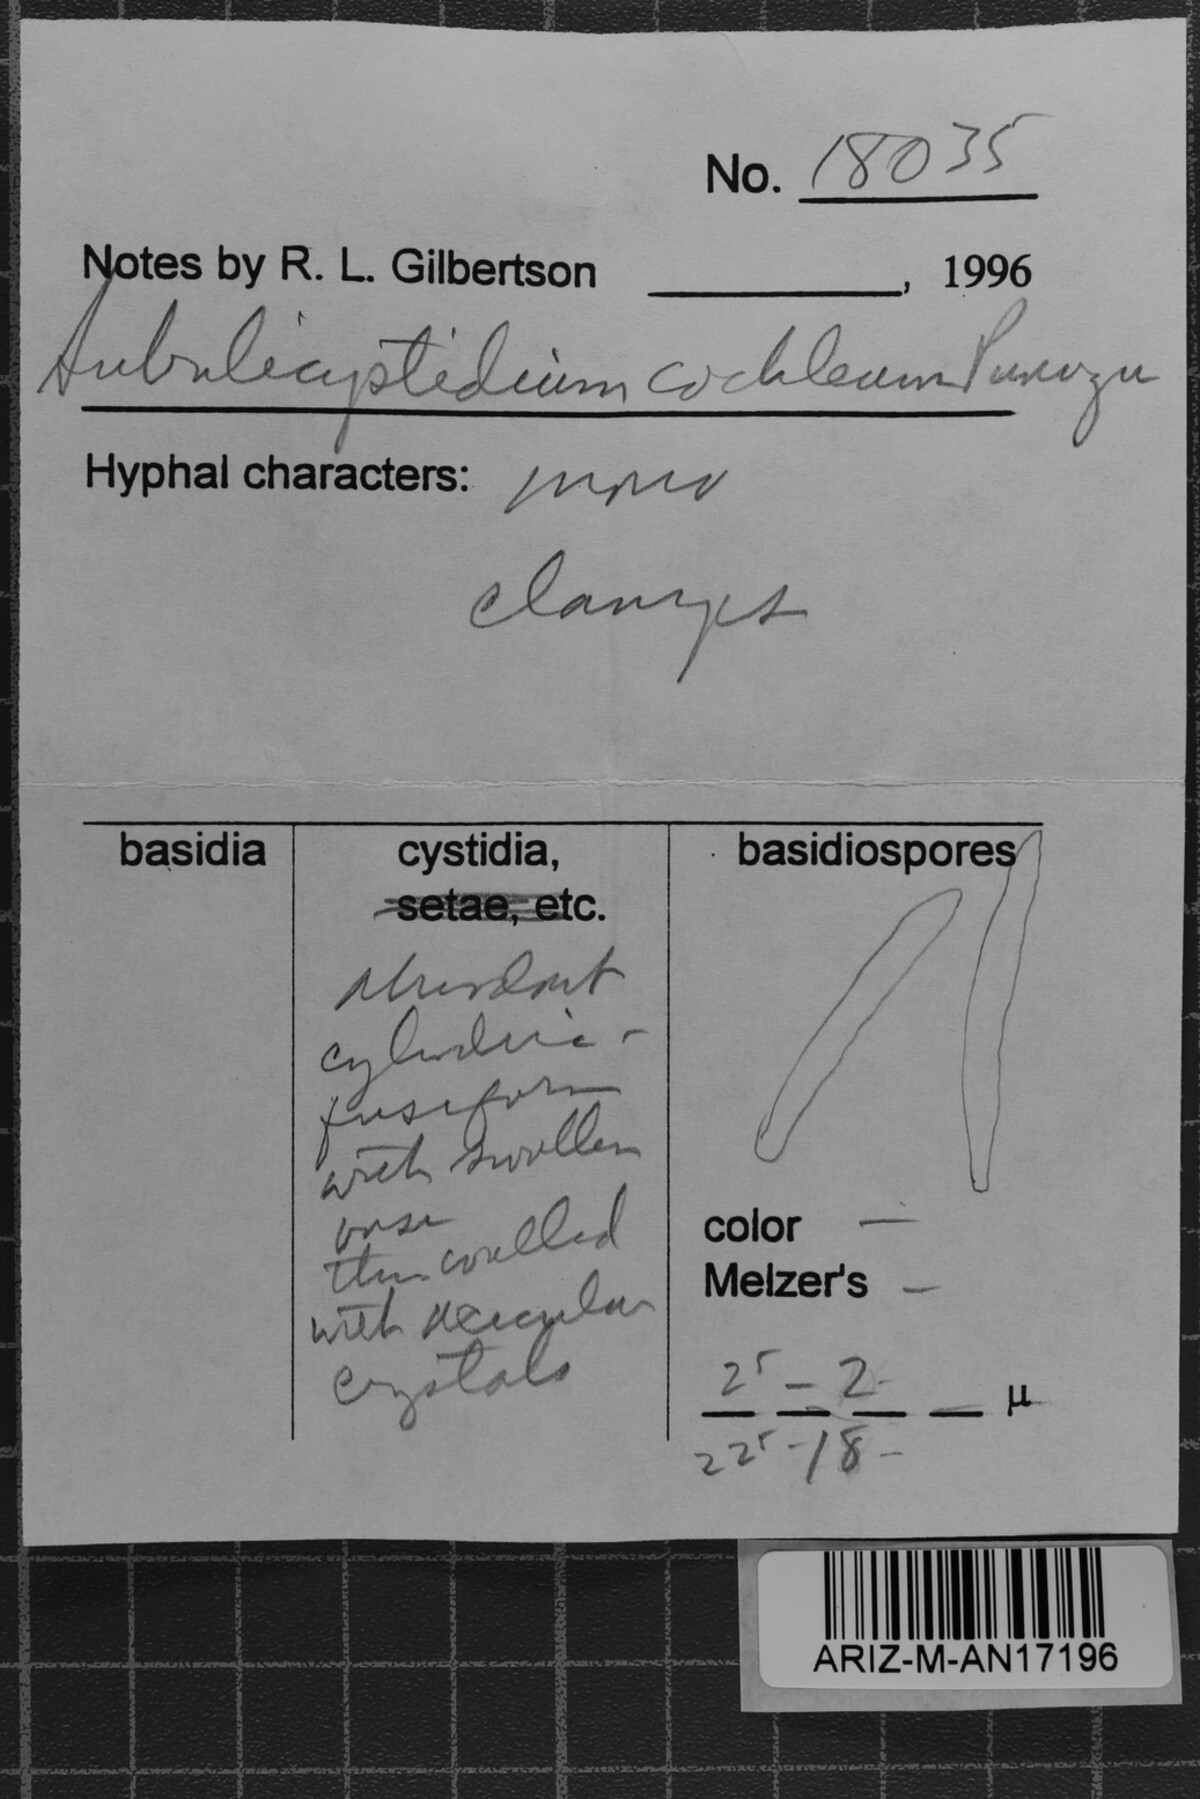 No. 18035
Notes by R. L. Gilbertson ________, 1996
Subulicystidium cochleum Punugu
Hyphal characters: mono
clamps
basidia
cystidia,
setae, etc.
abundant
cylindric-
fusiform
with swollen
base
thin walled
with acicular
crystals
basidiospores
color —
Melzer's —
25 - 2- μ
225 - 18 -
ARIZ-M-AN17196